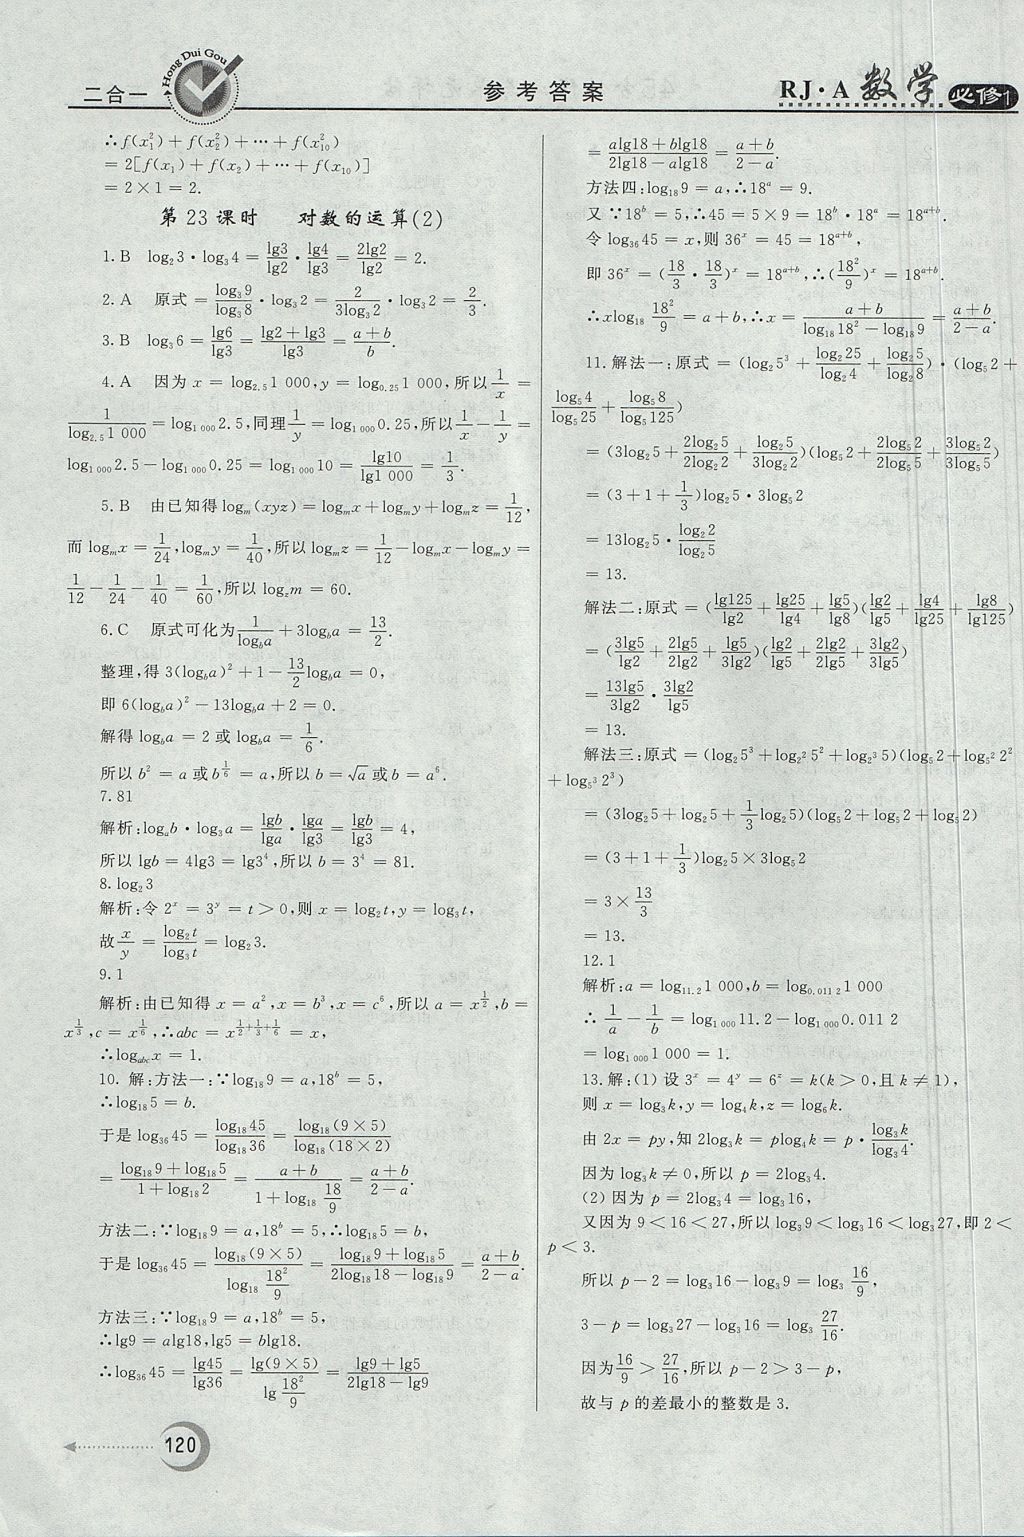 Hong Dui Gou
二合一
参考答案
RJ·A 数学 必修1
∴f(x₁²)+f(x₂²)+⋯+f(x₁₀²)
=2[f(x₁)+f(x₂)+⋯+f(x₁₀)]
=2×1=2.
第23课时 对数的运算(2)
1.B log₂3·log₃4=lg3/lg2·lg4/lg3=2lg2/lg2=2.
2.A 原式=log₃9/log₃8·log₃2=2/(3log₃2)·log₃2=2/3.
3.B log₃6=lg6/lg3=(lg2+lg3)/lg3=(a+b)/b.
4.A 因为x=log_{2.5}1 000,y=log_{0.25}1 000,所以1/x=
1/(log_{2.5}1 000)=log_{1 000}2.5,同理1/y=log_{1 000}0.25,所以1/x-1/y=
log_{1 000}2.5-log_{1 000}0.25=log_{1 000}10=lg10/lg1 000=1/3.
5.B 由已知得log_m(xyz)=log_m x+log_m y+log_m z=1/12,
而log_m x=1/24,log_m y=1/40,所以log_m z=1/12-log_m x-log_m y=
1/12-1/24-1/40=1/60,所以log_z m=60.
6.C 原式可化为1/(log_b a)+3log_b a=13/2.
整理,得3(log_b a)²+1-13/2 log_b a=0,
即6(log_b a)²-13log_b a+2=0.
解得log_b a=2或log_b a=1/6.
所以b²=a或b^{1/6}=a,所以b=√a或b=a⁶.
7.81
解析:log_a b·log₃a=lgb/lga·lga/lg3=lgb/lg3=4,
所以lgb=4lg3=lg3⁴,所以b=3⁴=81.
8.log₂3
解析:令2^x=3^y=t>0,则x=log₂t,y=log₃t,
故x/y=log₂t/log₃t=log₂3.
9.1
解析:由已知得x=a²,x=b³,x=c⁶,所以a=x^{1/2},b=
x^{1/3},c=x^{1/6},∴abc=x^{1/2+1/3+1/6}=x,
∴log_{abc}x=1.
10.解:方法一:∵log₁₈9=a,18^b=5,
∴log₁₈5=b.
于是log₃₆45=log₁₈45/log₁₈36=log₁₈(9×5)/log₁₈(18×2)
=(log₁₈9+log₁₈5)/(1+log₁₈2)=(a+b)/(1+log₁₈(18/9))=(a+b)/(2-a).
方法二:∵log₁₈9=a,18^b=5,∴log₁₈5=b,
于是log₃₆45=log₁₈(9×5)/log₁₈(18²/9)=(log₁₈9+log₁₈5)/(2log₁₈18-log₁₈9)=(a+b)/(2-a).
方法三:∵log₁₈9=a,18^b=5,
∴lg9=alg18,lg5=blg18.
∴log₃₆45=lg45/lg36=lg(9×5)/lg(18²/9)=(lg9+lg5)/(2lg18-lg9)
=(alg18+blg18)/(2lg18-alg18)=(a+b)/(2-a).
方法四:∵log₁₈9=a,∴18^a=9.
又∵18^b=5,∴45=5×9=18^b·18^a=18^{a+b}.
令log₃₆45=x,则36^x=45=18^{a+b},
即36^x=(18/3·18/3)^x=18^{a+b},∴(18²/9)^x=18^{a+b}.
∴xlog₁₈(18²/9)=a+b,∴x=(a+b)/(log₁₈18²-log₁₈9)=(a+b)/(2-a).
11.解法一:原式=(log₂5³+log₂25/log₂4+log₂5/log₂8)·(log₅2+
log₅4/log₅25+log₅8/log₅125)
=(3log₂5+2log₂5/2log₂2+log₂5/3log₂2)(log₅2+2log₅2/2log₅5+3log₅2/3log₅5)
=(3+1+1/3)log₂5·3log₅2
=13log₂5·log₂2/log₂5
=13.
解法二:原式=(lg125/lg2+lg25/lg4+lg5/lg8)(lg2/lg5+lg4/lg25+lg8/lg125)
=(3lg5/lg2+2lg5/2lg2+lg5/3lg2)(lg2/lg5+2lg2/2lg5+3lg2/3lg5)
=13lg5/3lg2·3lg2/lg5
=13.
解法三:原式=(log₂5³+log_{2²}5²+log_{2³}5)(log₅2+log_{5²}2²
+log_{5³}2³)
=(3log₂5+log₂5+1/3 log₂5)(log₅2+log₅2+log₅2)
=(3+1+1/3)log₂5×3log₅2
=3×13/3
=13.
12.1
解析:a=log_{11.2}1 000,b=log_{0.011 2}1 000
∴1/a-1/b=log_{1 000}11.2-log_{1 000}0.011 2
=log_{1 000}1 000=1.
13.解:(1)设3^x=4^y=6^z=k(k>0,且k≠1),
则x=log₃k,y=log₄k,z=log₆k.
由2x=py,知2log₃k=plog₄k=p·log₃k/log₃4.
因为log₃k≠0,所以p=2log₃4.
(2)因为p=2log₃4=log₃16,
又因为9<16<27,所以log₃9<log₃16<log₃27,即2<
p<3.
所以p-2=log₃16-log₃9=log₃(16/9),
3-p=log₃27-log₃16=log₃(27/16).
因为16/9>27/16,所以p-2>3-p,
故与p的差最小的整数是3.
120